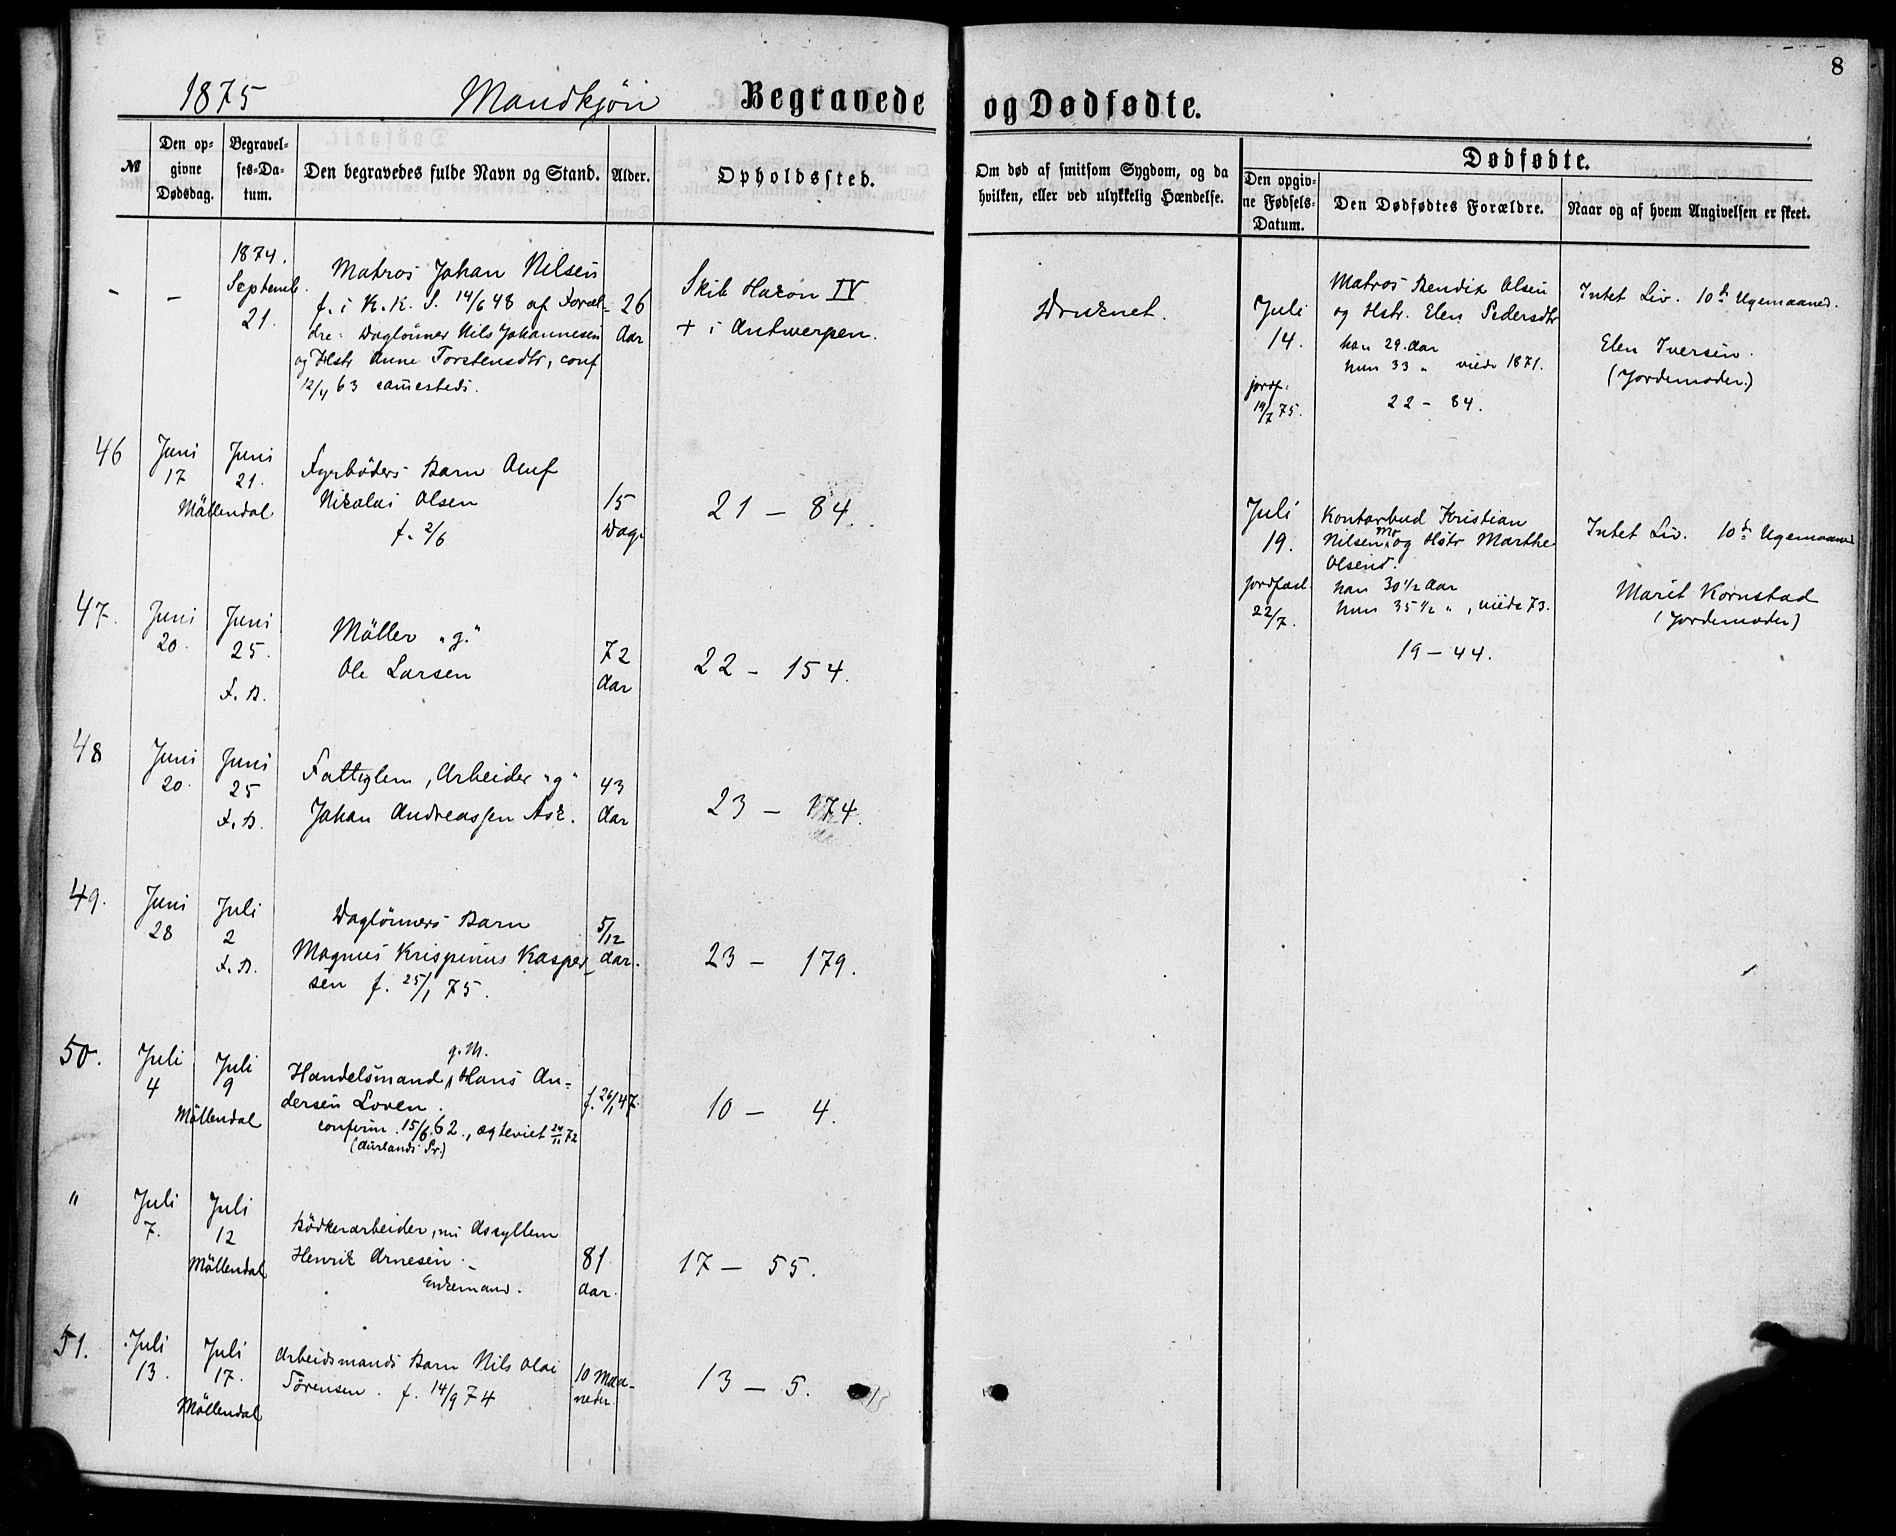 8
1875 Mandkjøn Begravede og Dødfødte.
№
Den op-
givne
Dødsdag.
Begravel-
ses-Da-
tum.
Den begravedes fulde Navn og Stand.
Alder.
Opholdssted.
Om død af smitsom Sygdom, og da
hvilken, eller ved ulykkelig Hændelse.
Dødfødte.
Den opgiv-
ne Fødsels-
Datum.
Den Dødfødtes Forældre.
Naar og af hvem Angivelsen er skeet.
- -
1874.
Septemb.
21.
Matros Johan Nilsen
f. i K. K. S. 14/6 48 af Foræl-
dre: Daglönner Nils Johannesen
og Hstr Anne Torstensdtr, conf
12/4 63 sam̄esteds.
26
Aar
Skib Hakon IV
+ i Antwerpen.
Druknet.
46
Juni
17
Juni
21.
Möllendal
Fyrböders Barn Oluf
Nikolai Olsen
f. 2/6
15
Dage
21 - 84.
47.
Juni
20.
Juni
25.
F. B.
Möller "g."
Ole Larsen
72
Aar
22 - 154.
48
Juni
20.
Juni
25
F. B.
Fattiglem, Arbeider "g"
Johan Andreassen Ask.
43
Aar
23 - 174.
49.
Juni
28
Juli
2
F. B.
Daglönners Barn
Magnus Krispinus Kasper-
sen f. 25/1 75.
5/12
Aar.
23 - 179.
50.
Juli
4
Juli
9
Möllendal
g. M.
Handelsmand, Hans An-
dersen Loven.
confirm. 15/6 62., ægteviet 24/11 72
(Aurlands Pr.)
f. 26/1 47.
10 - 4.
"
Juli
7.
Juli
12
Möllendal
Bödkerarbeider, nu Asyllem
Henrik Arnesen. -
Enkemand.
81
Aar.
17 - 55.
51.
Juli
13.
Juli
17.
Möllendal
Arbeidsmands Barn Nils Olai
Sörensen. f. 14/9 74
10 Maa-
neder
13 - 5.
Juli
14.
jordf.
19/7 75.
Matros Bendix Olsen
og Hstr. Elen Pedersdtr
han 29. Aar
hun 33 " viede 1871.
22 - 84.
Intet Liv. 10de Ugemaaned.
Elen Iversen.
(Jordemoder.)
Juli
19.
jordfast
22/7.
Kontorbud Kristian
Nilsen og Hstr Marthe
Olsend.
han 30 1/2 Aar
hun 35 1/2 ", viede 73.
19 - 44.
Intet Liv. 10de Ugemaaned
Marit Kornstad
(Jordemoder)